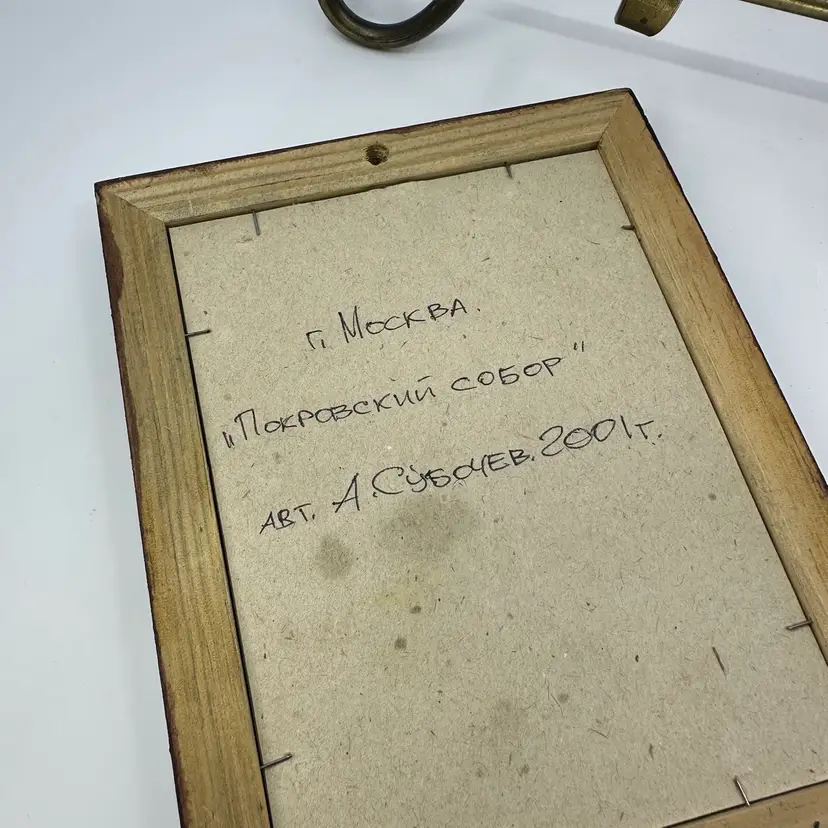 г. Москва.
„Покровский собор"
авт. А. Субочев. 2001г.